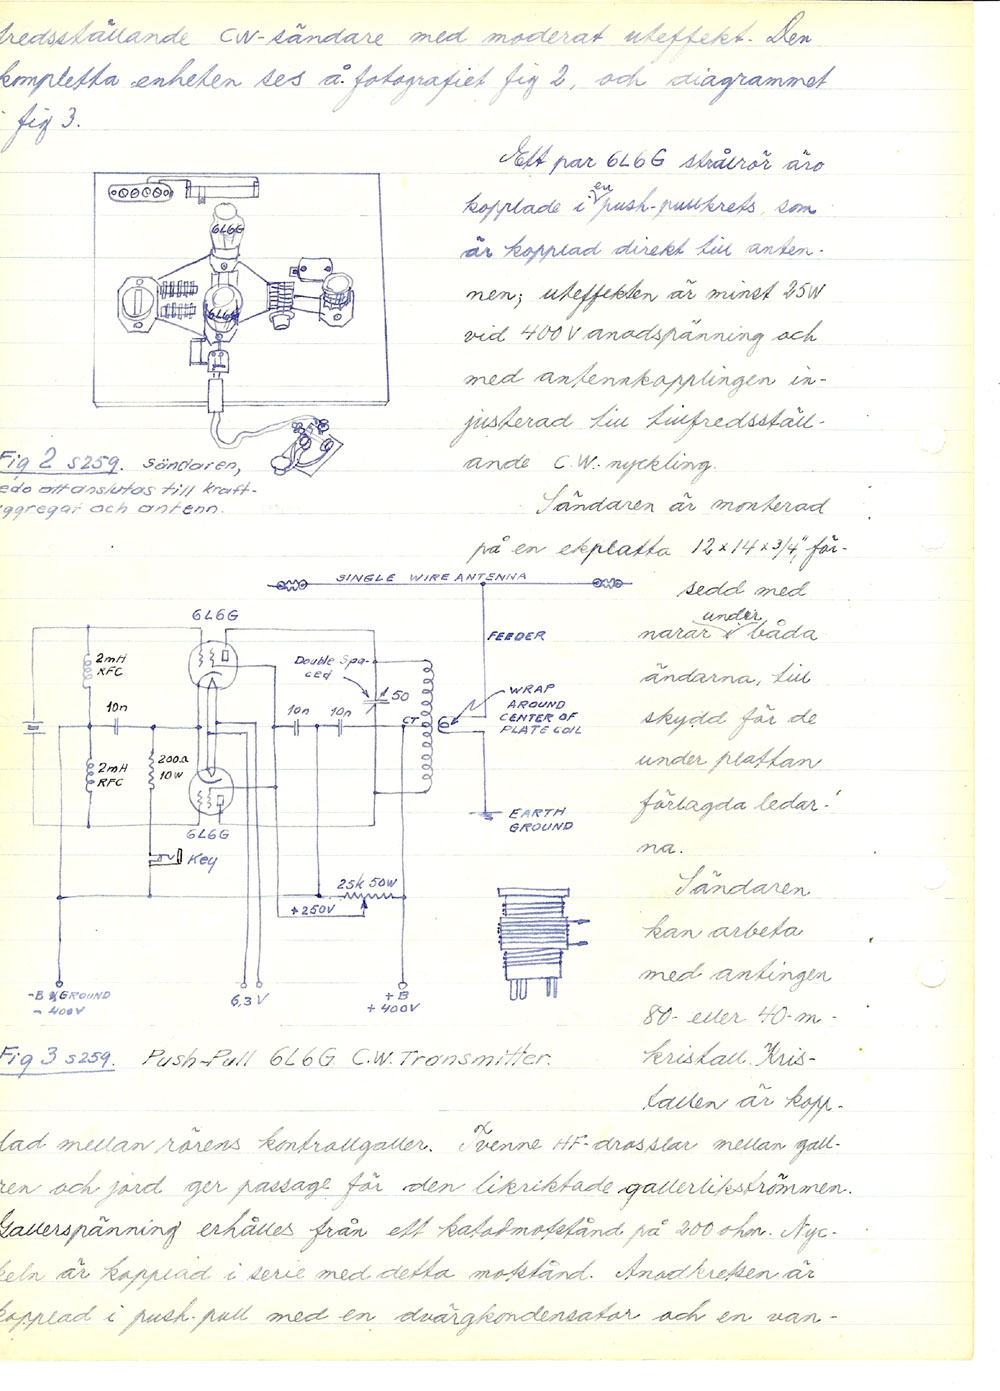 fredsställande CW-sändare med moderat uteffekt. Den
kompletta enheten ses å fotografiet fig 2, och diagrammet
i fig 3.
Ett par 6L6G strålrör äro
kopplade i en push-pullkrets, som
är kopplad direkt till anten-
nen; uteffekten är minst 25W
vid 400V anodspänning och
med antennkopplingen in-
justerad till tillfredsställ-
ande C.W.-nyckling.
Sändaren är monterad
på en ekplatta 12 x 14 x 3/4", för-
sedd med
narar under båda
ändarna, till
skydd för de
under plattan
förlagda ledar-
na.
Sändaren
kan arbeta
med antingen
80- eller 40-m-
kristall. Kris-
tallen är kopp-
6L6G
6L6G
Fig 2 s259. Sändaren,
redo att anslutas till kraft-
aggregat och antenn.
SINGLE WIRE ANTENNA
6L6G
FEEDER
2mH
RFC
Double Spa-
ced
50
WRAP
AROUND
CENTER OF
PLATE COIL
10n
10n
10n
CT
2mH
RFC
200Ω
10W
6L6G
EARTH
GROUND
Key
25K 50W
+250V
-B & GROUND
- 400V
6,3V
+B
+400V
Fig 3 s259. Push-Pull 6L6G C.W. Transmitter.
lad mellan rörens kontrollgaller. Tvenne HF-drosslar mellan gall-
ren och jord ger passage för den likriktade gallerlikströmmen.
Gallerspänning erhålles från ett katodmotstånd på 200 ohm. Nyc-
keln är kopplad i serie med detta motstånd. Anodkretsen är
kopplad i push-pull med en dvärgkondensator och en van-